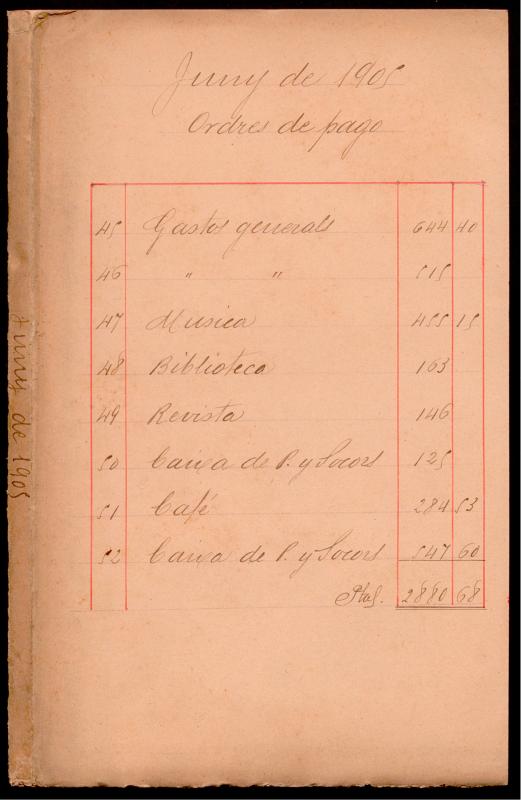 Juny de 1905
Ordres de pago
45 Gastos generals 644 40
46 " " 515
47 Musica 455 15
48 Biblioteca 163
49 Revista 146
50 Caixa de P. y Socors 125
51 Café 284 53
52 Caixa de P. y Socors 547 60
Ptas. 2880 68
Juny de 1905